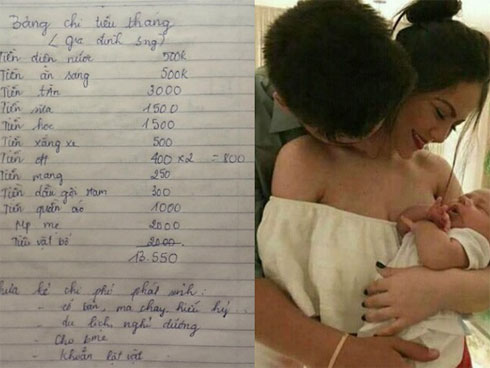 Bảng chi tiêu tháng
( Gia đình 3ng)
Tiền điện nước 500k
Tiền ăn sáng 500k
Tiền trăn 3000
Tiền sữa 1500
Tiền học 1500
Tiền xăng xe 500
Tiền đt 400 x 2 = 800
Tiền mạng 250
Tiền dầu gội 300
Tiền quần áo 1000
Mp mẹ 2000
Tiêu vặt bố 2000
13.550
kể chi phí phát sinh
- cỗ bàn, ma chay, hiếu hỷ
- du lịch, nghỉ dưỡng
- Cho
- Khoản lặt vặt